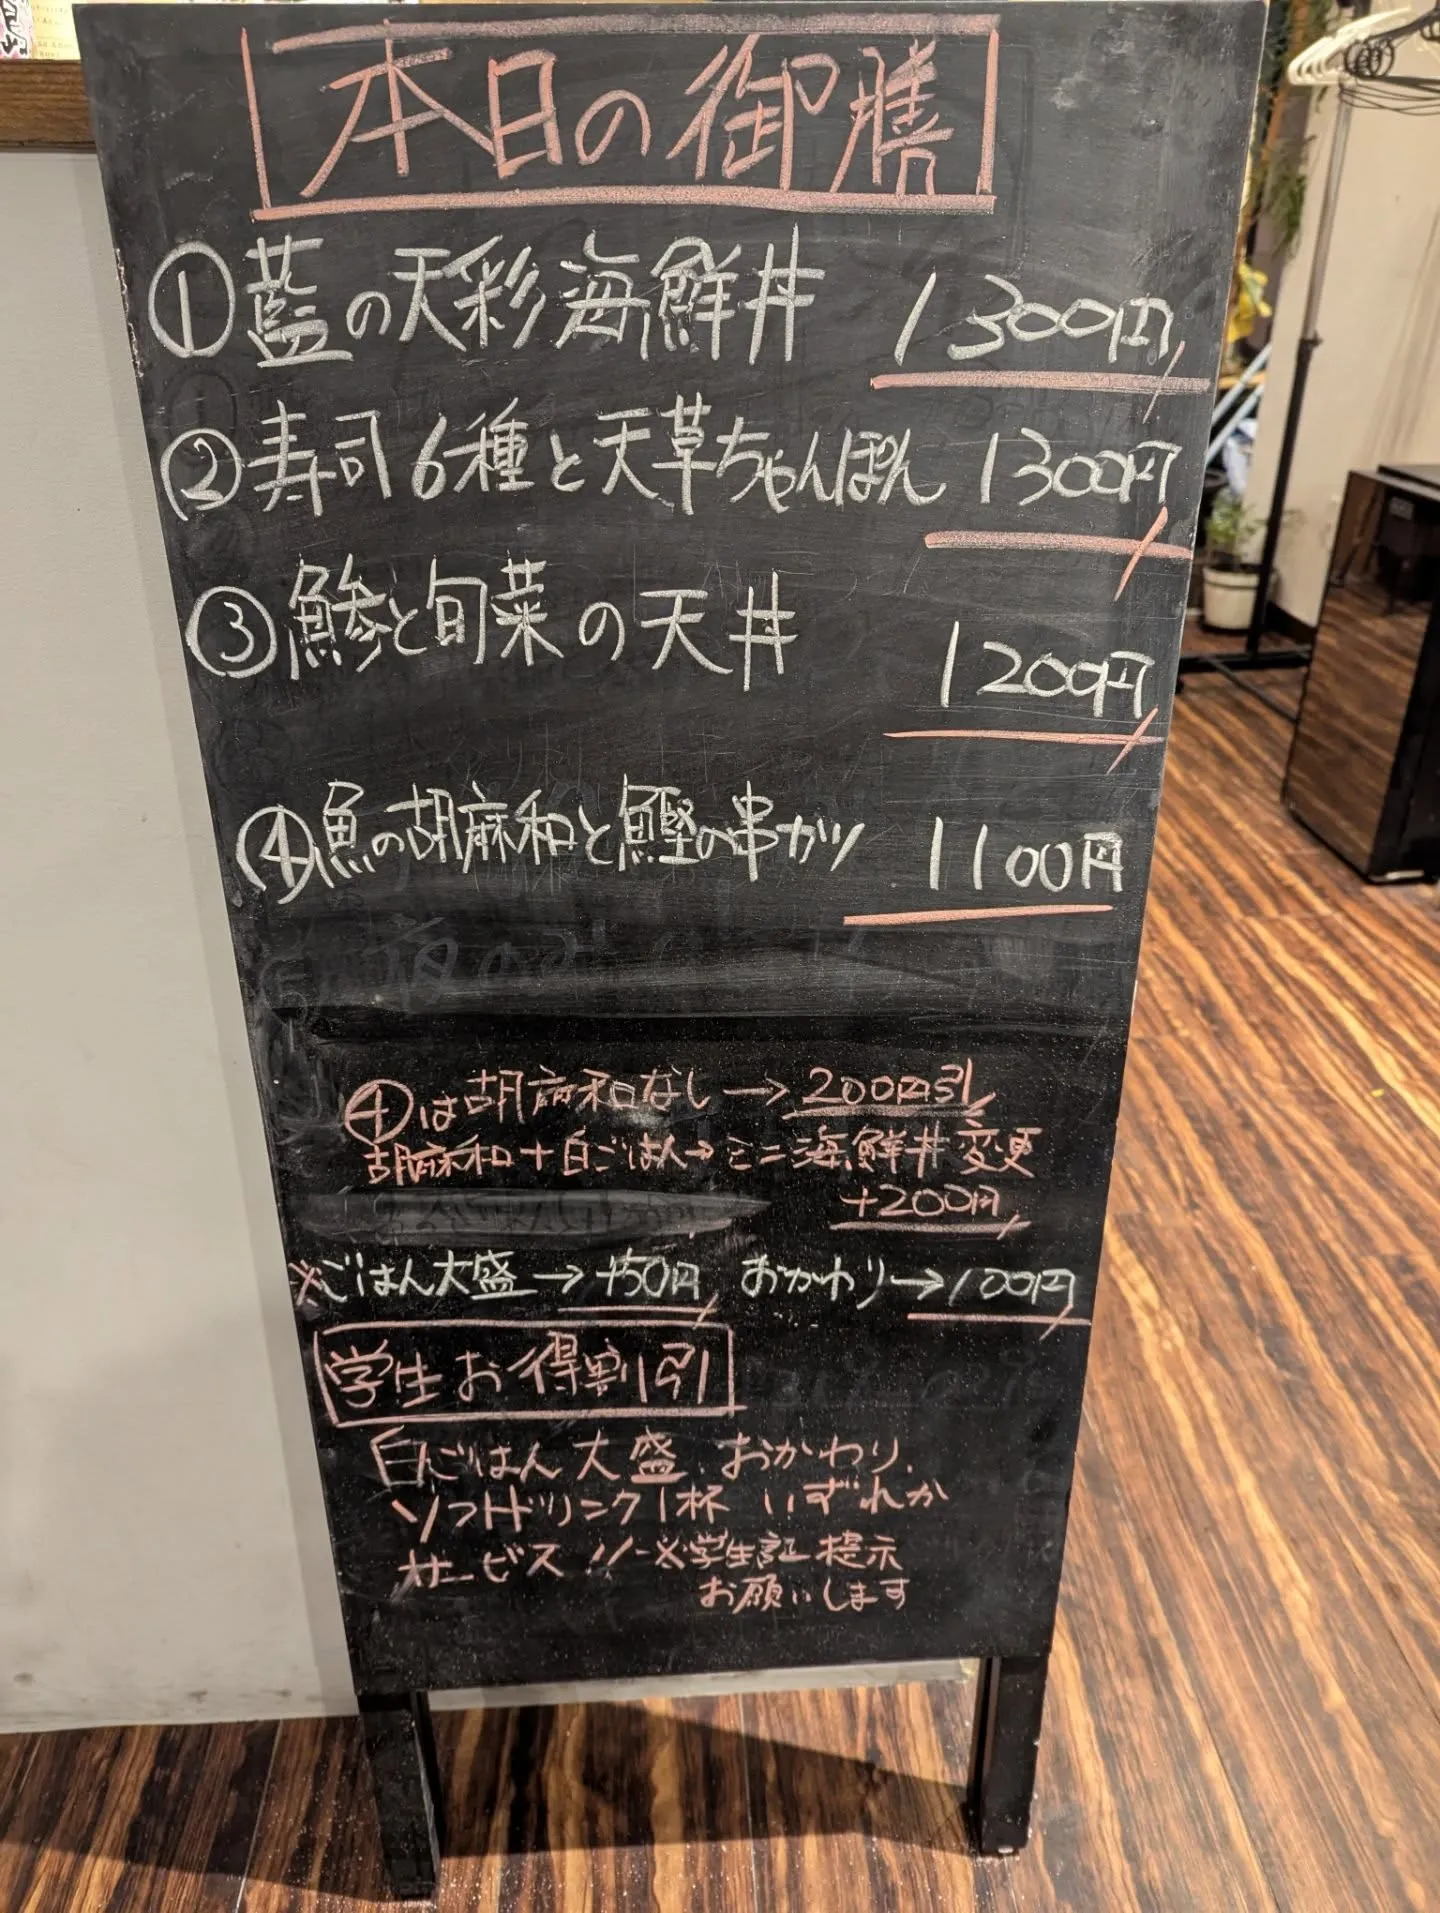 本日の御膳
①藍の天彩海鮮丼 1300円
②寿司6種と天草ちゃんぽん 1300円
③鯵と旬菜の天丼
1200円
④魚の胡麻和と鰹の串カツ 1100円
④は胡麻和なし→200円引
胡麻和+白ごはん→ミニ海鮮丼変更
+200円
※ごはん大盛→+50円 おかわり→100円
学生お得割引
白ごはん大盛.おかわり.
ソフトドリンク1杯 いずれか
サービス!!-※学生証提示
お願いします